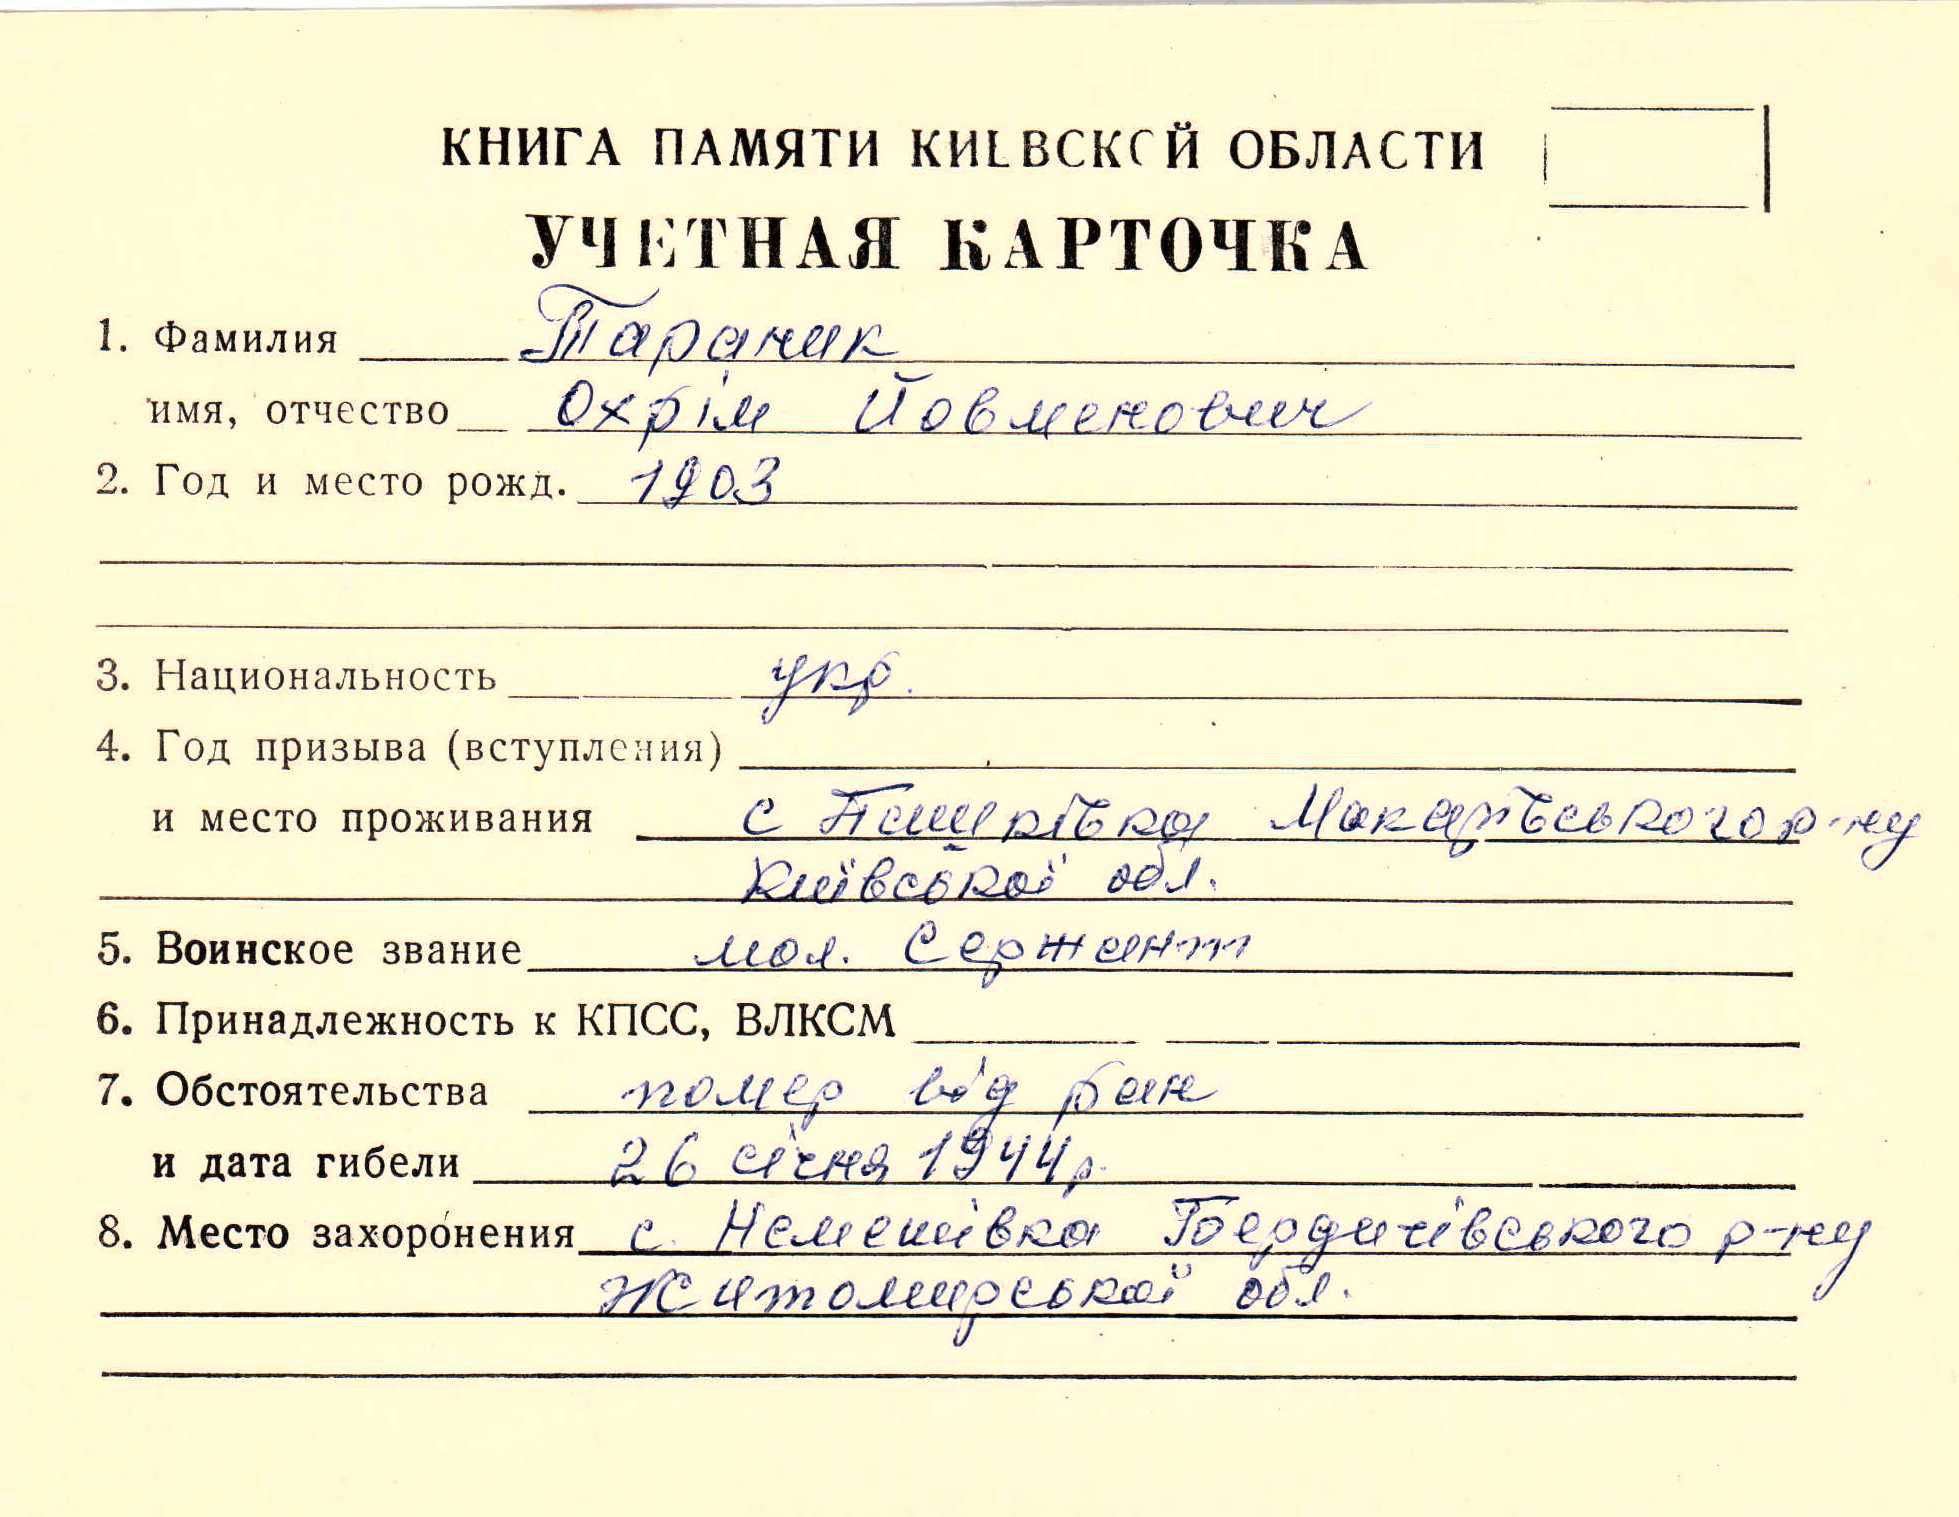 КНИГА ПАМЯТИ КИЕВСКОЙ ОБЛАСТИ
УЧЕТНАЯ КАРТОЧКА
1. Фамилия Тараник
имя, отчество Охрім Йовменович
2. Год и место рожд. 1903
3. Национальность укр.
4. Год призыва (вступления)
и место проживания с Пашківка Макарівського р-ну
Київської обл.
5. Воинское звание мол. Сержант
6. Принадлежность к КПСС, ВЛКСМ
7. Обстоятельства помер від ран
и дата гибели 26 січня 1944р.
8. Место захоронения с. Бердичівського р-ну
Житомирської обл.